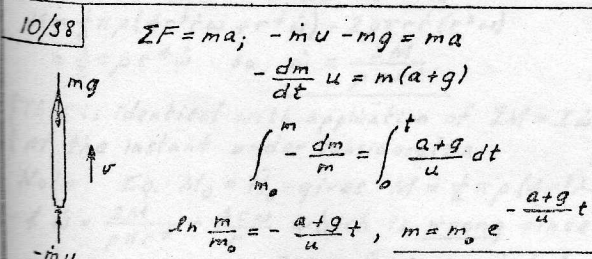 10/38
ΣF = ma; -ṁu - mg = ma
- dm/dt u = m(a+g)
∫_{m₀}^{m} - dm/m = ∫_{0}^{t} (a+g)/u dt
ln m/m₀ = - (a+g)/u t , m = m₀ e^{-(a+g)/u t}
mg
v
-ṁu